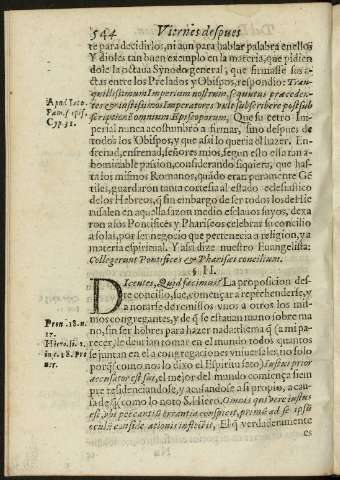 544 Viernes despues
te para decidirlos, ni aun para hablar palabra en ellos
Y dioles tan buen exemplo en la materia, que pidien
dole la octaua Synodo general, que firmasse sus e-
ctas entre los Prelados y Obispos, respondio: Tran-
quillissimum Imperium nostrum, sequutus præcedex-
tes
Imperatores vult subscribere post sub
scriptionē omnium Episcoporum, Que su cetro Im-
perial nunca acostumbró a firmar, sino despues de
todos los Obispos, y que assi lo queria el hazer. En-
frenad, enfrenad, señores mios, segun esto essa tan a-
bominable passion, considerando siquiera, que has-
ta los mismos Romanos, quãdo eran puramente Gē
tiles, guardaron tanta cortesia al estado eclesiastico
de los Hebreos, q̃ sin embargo de ser todos los de Hie
rusalen en aquella sazon medio esclauos suyos, dexa
ron a sos Pontifices y Phariseos celebrar su concilio
a solas, por ser negocio que pertenecia a religion, ya
materia espiritual. Y assi dize nuestro Euangelista:
Collegerunt Pontifices & Pharisæi concilium.
§ II.
Dicentes, Quid facimus? La proposicion des-
te concilio, fue, començar a reprehenderse, y
a notarse de remissos vnos a otros los mis-
mos congregantes, y de q̃ se estauan mano sobre ma
no, sin ser hõbres para hazer nada: thema q̃ (a mi pa-
recer, le deuian tomar en el mundo todos quantos
se juntan en el a congregaciones vniuersales, no solo
porq̃ (como nos lo dixo el Espiritu santo) Iustus prior
accusator est sui, el mejor del mundo comiença siem
pre residenciandose, y acusandose a si propio, a cau-
sa de q̃ (como lo noto S. Hiero. Omnis qui vere iustus
est, vbi peccantis errantia conspicit, primũ ad se ipsũ
oculũ considerationis inflectit, El q̃ verdaderamente
es
Apud
Pam. s epis.
Cyp. 31.
Prou. 18. n.
17.
Hiero. li. 2.
in c. 18. Pro
uer.